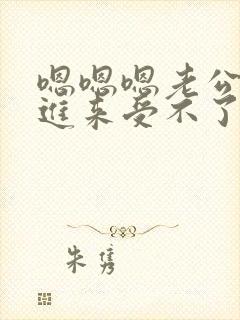 嗯嗯嗯老公
进来受不了
朱隽